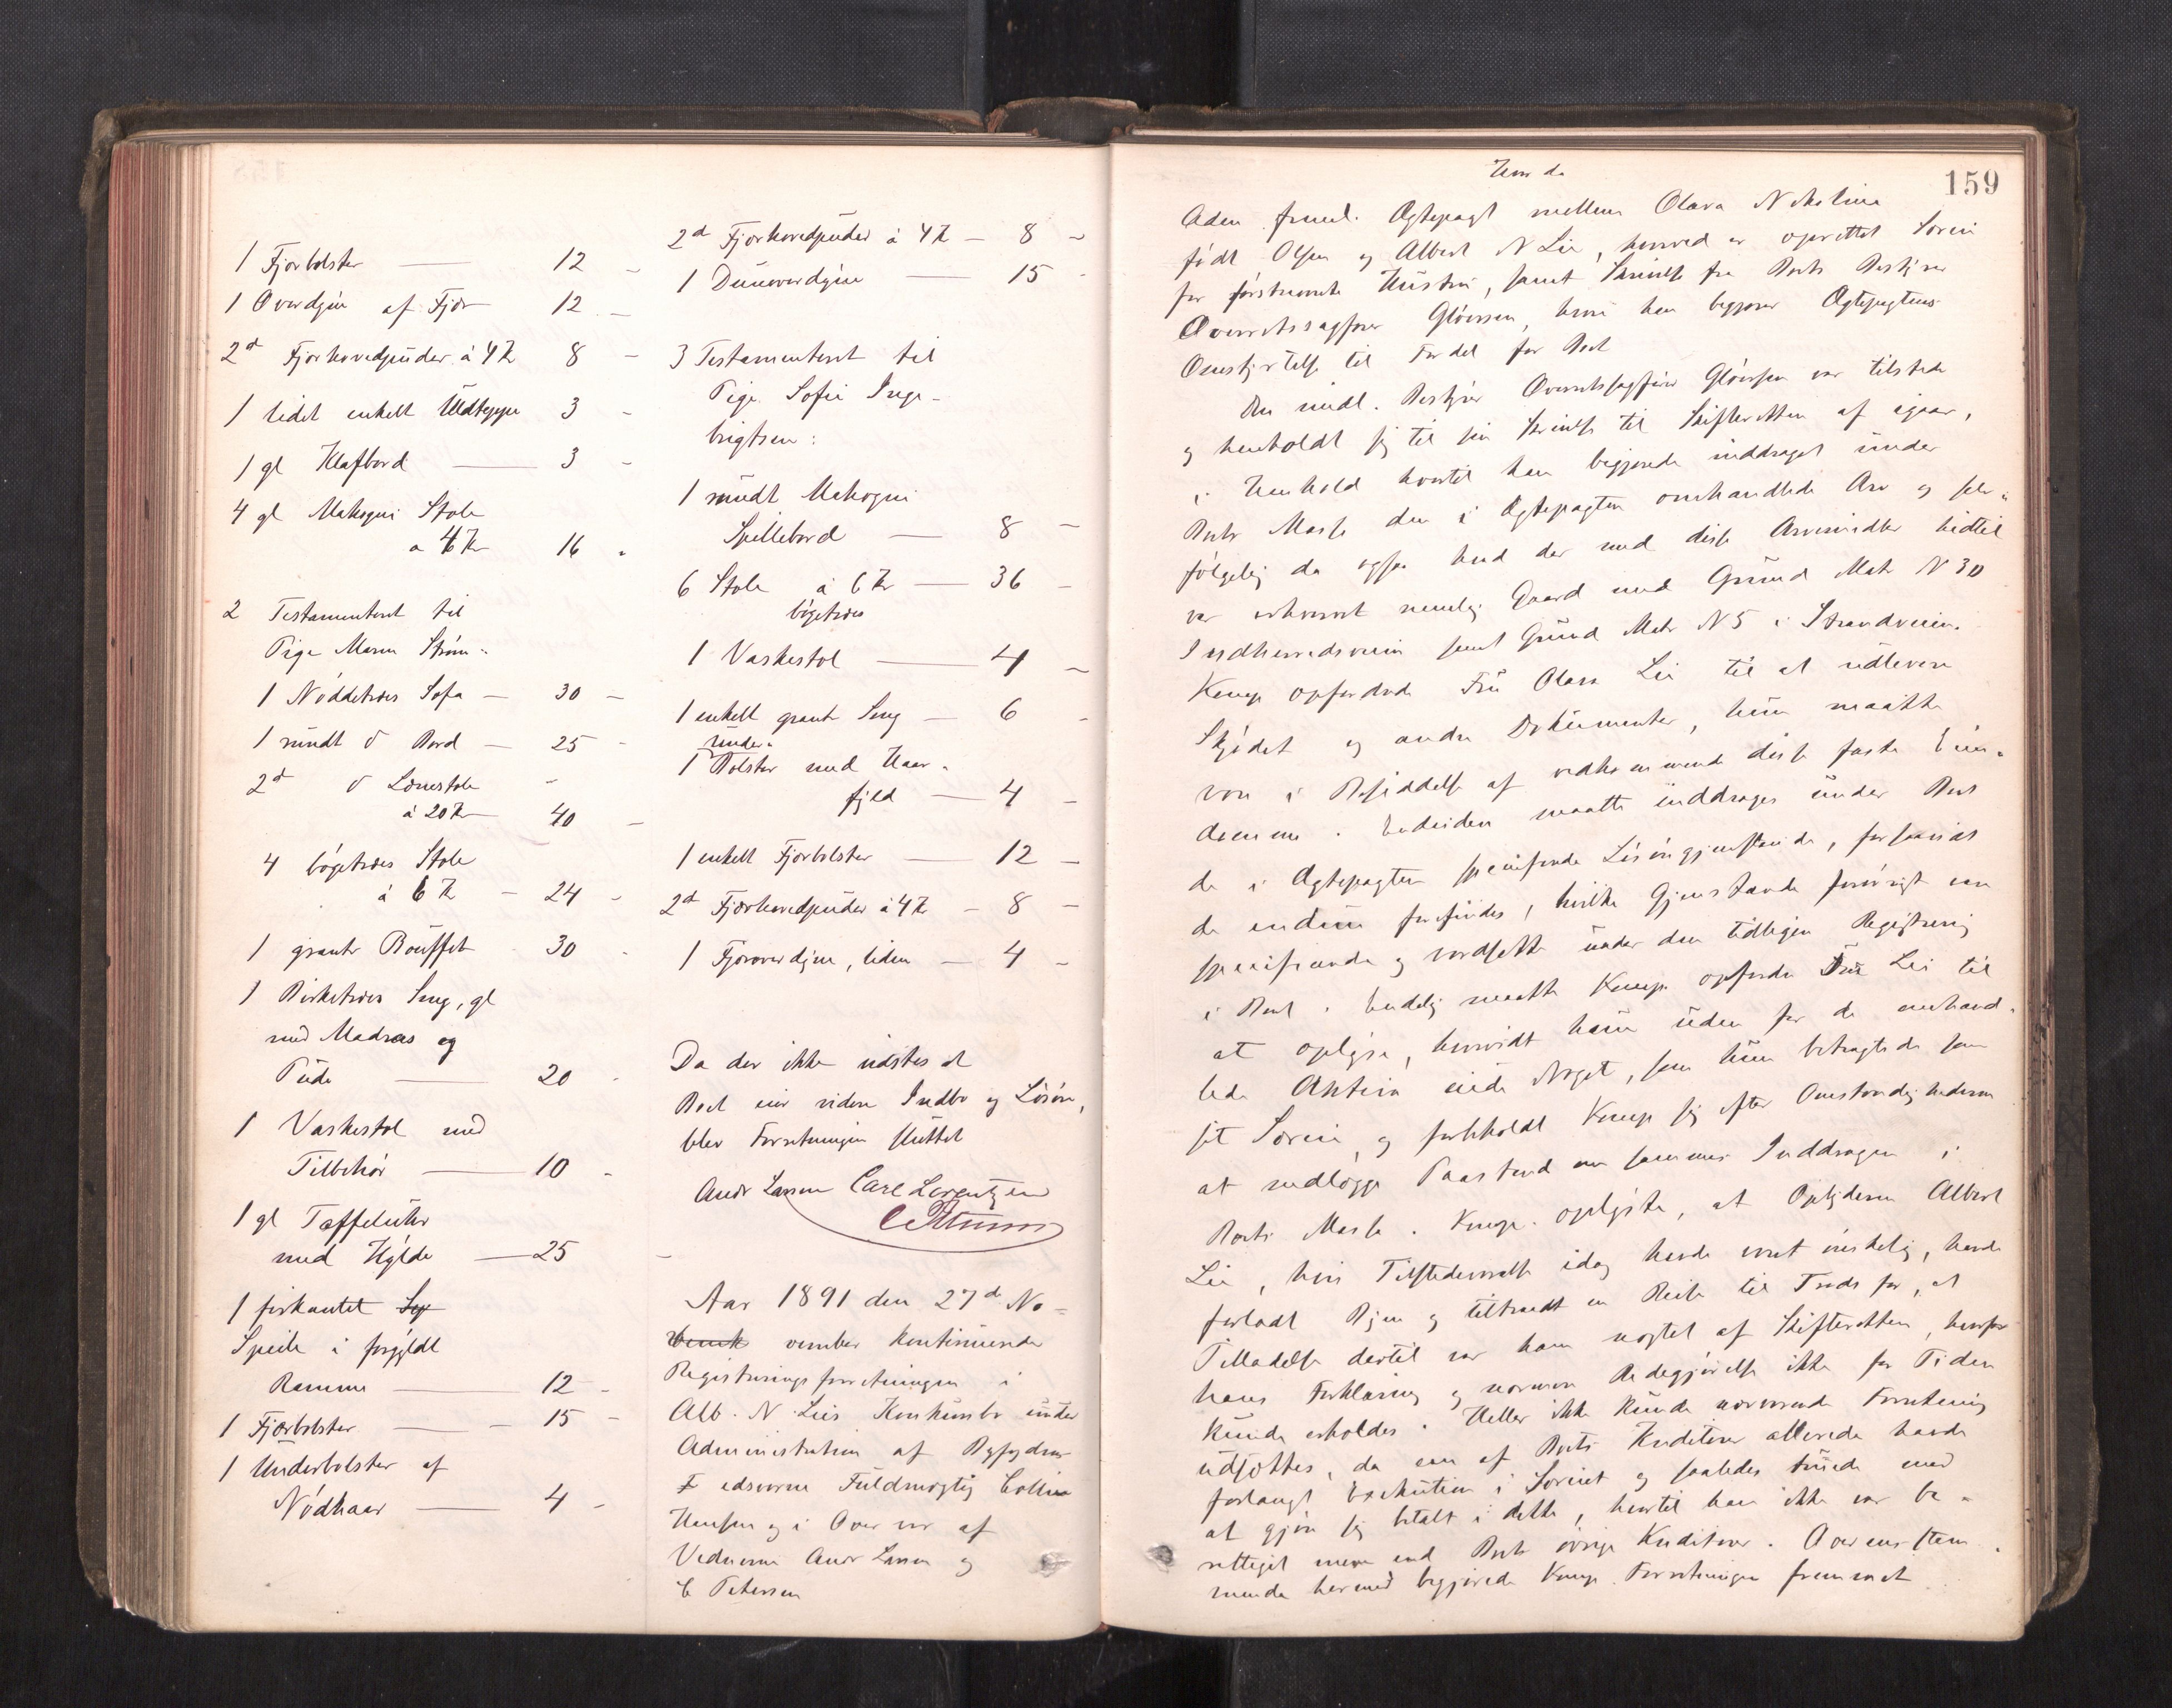 1 Fjørbolster — 12 –
1 Overdyne af Fjør 12 –
2de Fjørhovedpuder à 4 Kr 8 –
1 lidet enkelt Uldteppe 3 –
1 gl Klafbord — 3 –
4 gl Mahogni Stole
a 4 Kr 16 "
2 Testamenteret til
Pige Maren Strøm:
1 Nøddetræes Sofa — 30 –
1 rundt do Bord — 25 –
2de do Lænestole –
à 20 Kr 40 –
4 bøgetræes Stole
à 6 Kr – 24 –
1 grantr Bouffet 30 –
1 Birketræes Seng, gl
med Madras og
Pude — 20 –
1 Vaskestol med
Tilbehør — 10 –
1 gl Taffeluhr
med Hylde — 25 –
1 firkantet
Speile i forgyldt
Ramme — 12 –
1 Fjørbolster — 15 –
1 Underbolster af
Nødhaar — 4 –
2de Fjørhovedpuder à 4 Kr – 8 –
1 Duunoverdyne — 15 –
3 Testamenteret til
Pige Sofie Inge-
brigtsen:
1 rundt Mahogni
Spillebord — 8 –
6 Stole à 6 Kr — 36 –
bøgetræes
1 Vaskestol — 4 –
1 enkelt grantr Seng — 6 –
under-
1 Bolster med Haar-
fyld — 4 –
1 enkelt Fjørbolster — 12 –
2de Fjørhovedpuder à 4 Kr – 8 –
1 Fjøroverdyne, liden — 4 –
Da der ikke udstes at
Boet eier videre Indbo og Løsøre,
blev Forretningen sluttet
Andr Larsen Carl Lorentzen
Aar 1891 den 27de No-
vember kontinueredes
Registreringsforretningen i
Alb. N. Lies Konkursbo under
Administration af Byfogdens
edsvorne Fuldmægtig Collin
Hansen og i Overvær af
Vidnerne Andr Larsen og
C Petersen
159
Hvor da
Aden freml. Ægtepagt mellem Olava Nikoline
født Olsen og Albert N Lie, hvorved er oprettet Særeie
for førstnævnte Hustru, samt Skrivelse fra Boets Bestyrer
Overretssagfører Gløersen, hvori han begjærer Ægtepagtens
Omstyrtelse til Fordel for Boet
Den midl. Bestyrer Overretssagfører Gløersen var tilstede
og henholdt sig til sin Skrivelse til Skifteretten af igaar,
i Henhold hvortil han begjærede inddraget under
Boets Masse den i Ægtepagten omhandlede Arv og selv-
følgelig da ogsaa hvad der med disse Arvemidler hidtil
var erhvervet nemlig Gaard med Grund Matr N 30
Indherredsveien samt Grund Matr N 5 i Strandveien.
Komp opfordrede Fru Olava Lie til at udlevere
Skjødet og andre Dokumenter, hun maatte
være i Besiddelse af vedkommende disse faste Eien-
domme. Endvidere maatte inddrages under Boet
de i Ægtepagten specificerede Løsøregjenstande, forsaavidt
de endnu forefindes, hvilke Gjenstande forøvrigt var
specificerede og værdsatte under den tidligere Registrering
i Boet. Endelig maatte Komp. opfordre Fru Lie til
at oplyse, hvorvidt hun uden for de omhand-
lede Aktiva eiede Noget, som hun betragtede som
sit Særeie, og forbeholdt Komp sig efter Omstændighederne
at nedlægge Paastand om sammes Inddragen i
Boets Masse. Komp. oplyste, at Opbyderen Albert
Lie, hvis Tilstedeværelse idag havde været ønskelig, havde
forladt Byen og tiltraadt en Reise til Trods for, at
Tilladelse dertil var ham nægtet af Skifteretten, hvorfor
hans Forklaring og nærmere Redegjørelse ikke for Tiden
kunde erholdes. Heller ikke kunde nærværende Forretning
udsættes, da een af Boets Kreditorer allerede havde
forlangt Exekution i Særeiet og saaledes truede med
at gjøre sig betalt i dette, hvortil han ikke var be-
rettiget mere end Boets øvrige Kreditorer. Overensstem-
mende hermed begjærede Komp. Forretningen fremmet